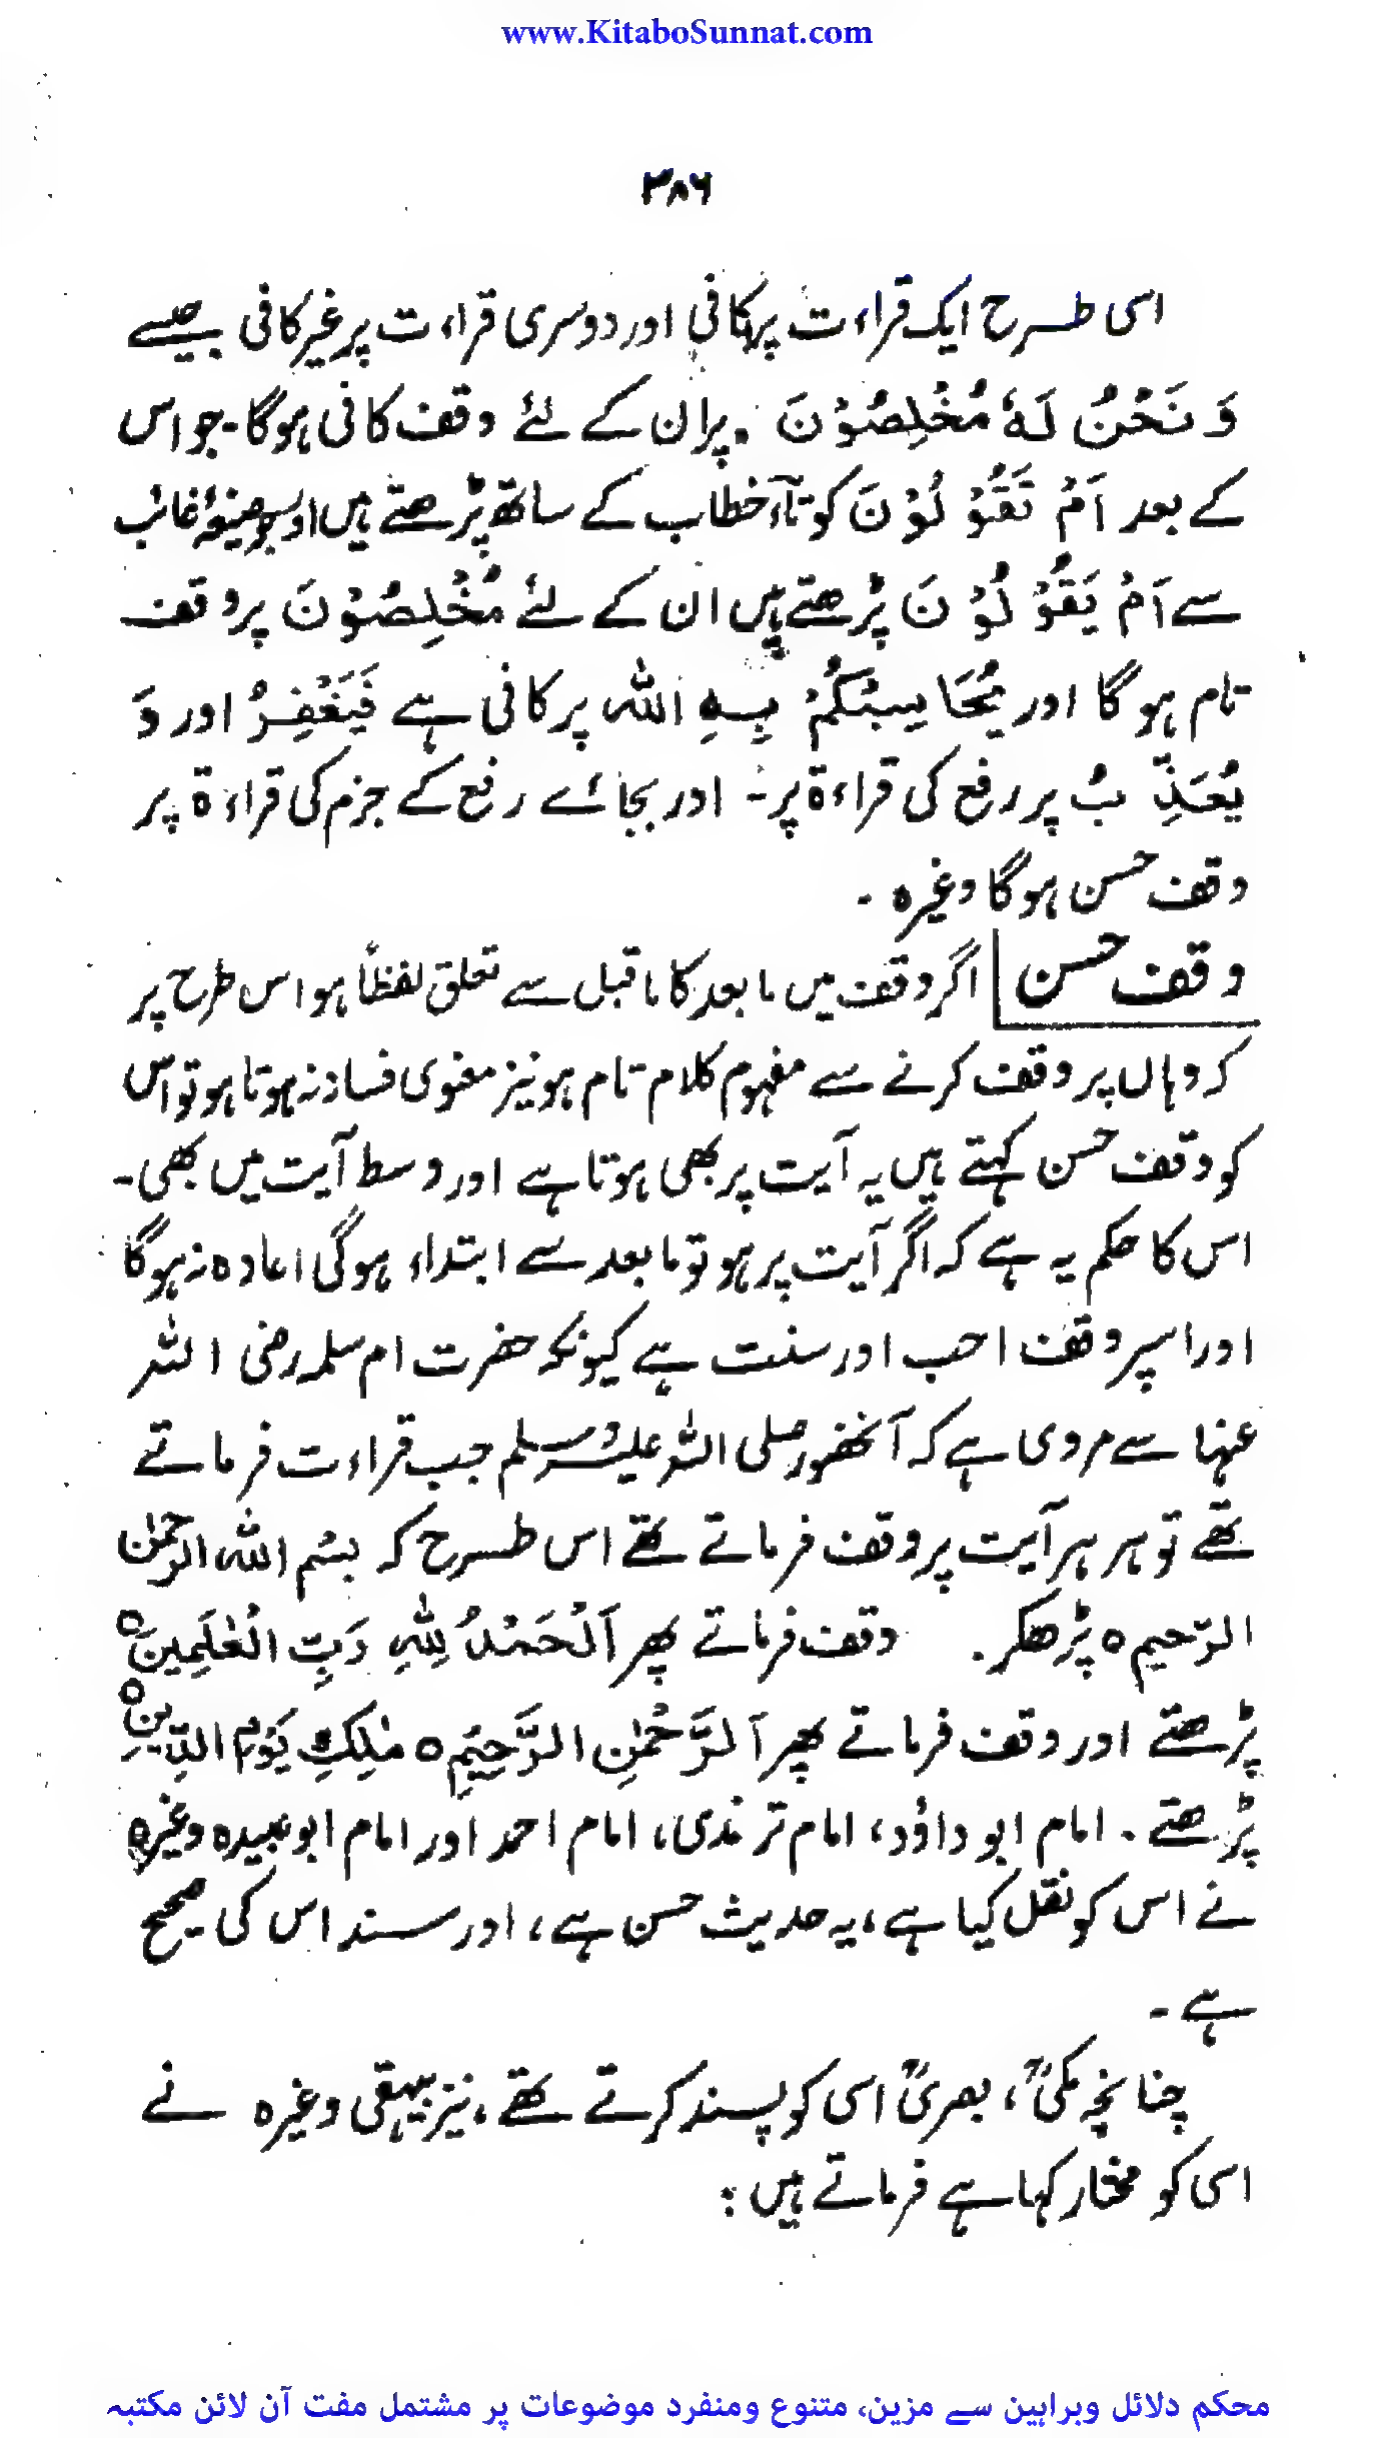 www.KitaboSunnat.com
۳۸۶
اسی طرح ایک قراءت پر کافی اور دوسری قراءت پر غیر کافی جیسے
وَنَحْنُ لَهٗ مُخْلِصُوْنَ . پر ان کے لئے وقف کافی ہوگا۔ جو اس
کے بعد اَمْ تَقُوْلُوْنَ کو تآء خطاب کے ساتھ پڑھتے ہیں اور جو صیغۂ غائب
سے اَمْ يَقُوْلُوْنَ پڑھتے ہیں ان کے لئے مُخْلِصُوْنَ پر وقف
تام ہوگا اور يُحَاسِبْكُمْ بِهِ اللّٰه پر کافی ہے فَيَغْفِرُ اور وَ
يُعَذِّبُ پر رفع کی قراءۃ پر۔ اور بجائے رفع کے جزم کی قراءۃ پر
وقف حسن ہوگا وغیرہ ۔
وقف حسن | اگر وقف میں مابعد کا ماقبل سے تعلق لفظاً ہو اس طرح پر
کہ وہاں پر وقف کرنے سے مفہوم کلام تام ہو نیز معنوی فساد نہ ہوتا ہو تو اس
کو وقف حسن کہتے ہیں یہ آیت پر بھی ہوتا ہے اور وسط آیت میں بھی۔
اس کا حکم یہ ہے کہ اگر آیت پر ہو تو مابعد سے ابتداء ہوگی اعادہ نہ ہوگا
اور اسپر وقف احب اور سنت ہے کیونکہ حضرت ام سلمہ رضی اللہ
عنہا سے مروی ہے کہ آنحضور صلی اللہ علیہ وسلم جب قراءت فرماتے
تھے تو ہر ہر آیت پر وقف فرماتے تھے اس طرح کہ بسْم اللّٰه الرحمٰن
الرّحیم ہ پڑھکر. وقف فرماتے پھر اَلْحَمْدُ لِلّٰهِ رَبِّ الْعٰلَمِينَ ہ
پڑھتے اور وقف فرماتے پھر اَلرَّحْمٰنِ الرَّحِيْمِ ہ مٰلِكِ يَوْمِ الدِّيْنِ ہ
پڑھتے ۔ امام ابو داؤد، امام ترمذی، امام احمد اور امام ابو عبیدہ وغیرہ
نے اس کو نقل کیا ہے، یہ حدیث حسن ہے، اور سند اس کی صحیح
ہے ۔
چنانچہ مکیؒ، بصریؒ اسی کو پسند کرتے تھے، نیز بیہقی وغیرہ نے
اسی کو مختار کہا ہے فرماتے ہیں :
محکم دلائل وبراہین سے مزین، متنوع ومنفرد موضوعات پر مشتمل مفت آن لائن مکتبہ